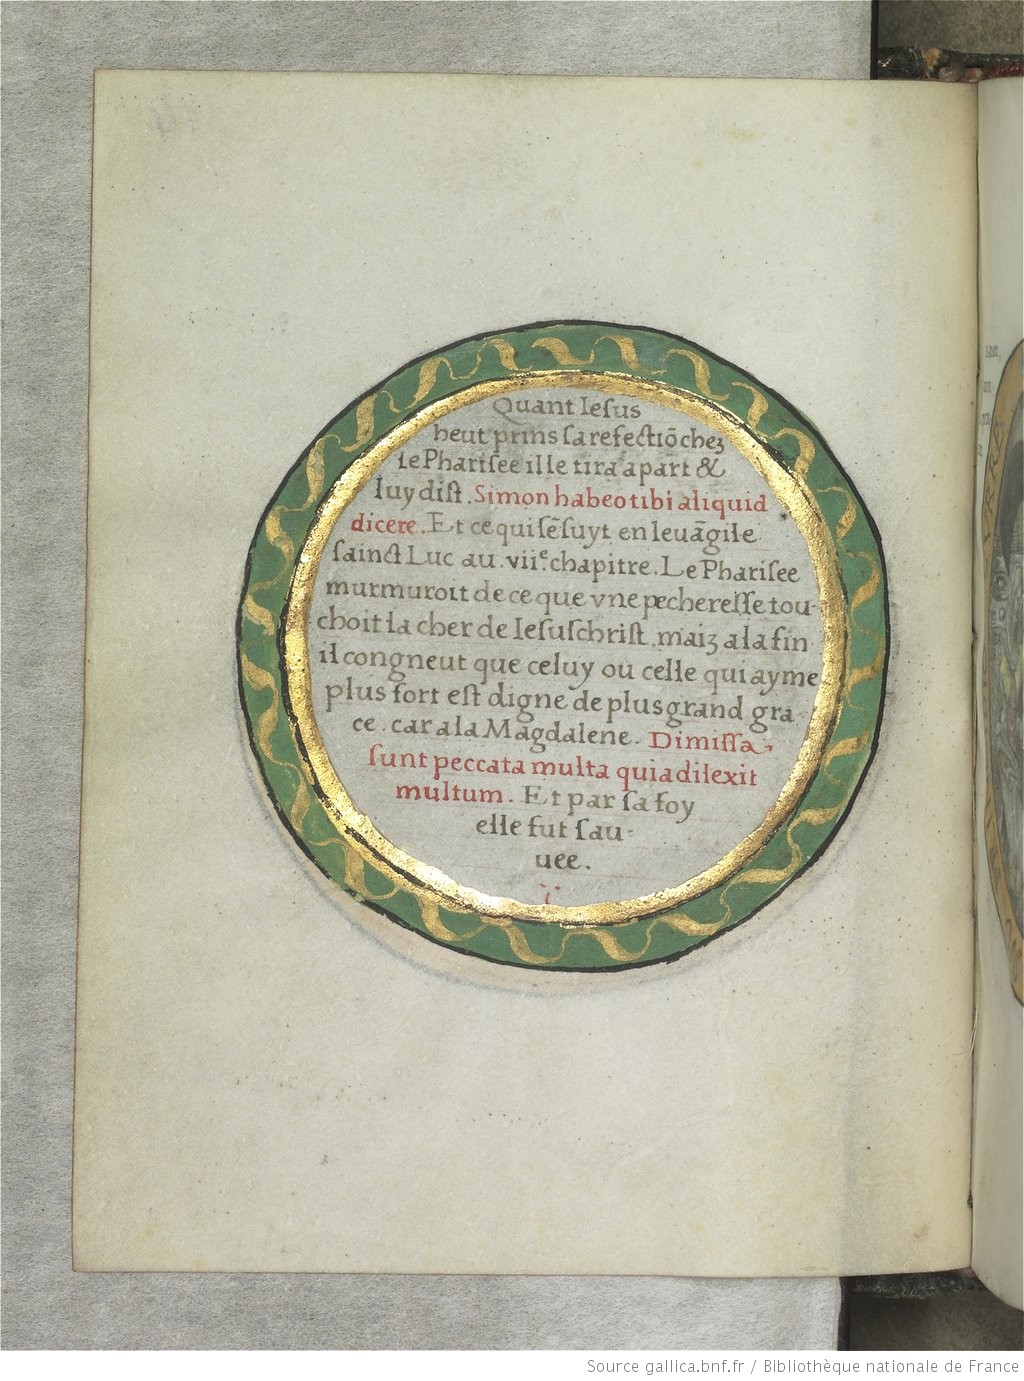 Quant Iesus
heut prins sa refectiō chez
le Pharisee il le tira a part &
luy dist. Simon habeo tibi aliquid
dicere. Et ce qui sēsuyt en leuāgile
sainct Luc au .vii.e chapitre. Le Pharisee
murmuroit de ce que vne pecheresse tou-
choit la cher de Iesuschrist. maiz a la fin
il congneut que celuy ou celle qui ayme
plus fort est digne de plus grand gra-
ce. car a la Magdalene. Dimissa
sunt peccata multa quia dilexit
multum. Et par sa foy
elle fut sau-
uee.
Source gallica.bnf.fr / Bibliothèque nationale de France